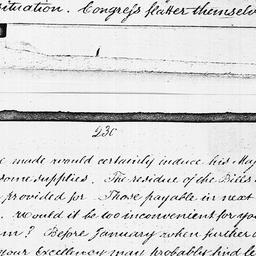 situation. Congress flatter themselv
230
made would certainly induce his Maj
some supplies. The residue of the Bills
provided for. Those payable in next
. would it be too inconvenient for you
m? Before January when further
your Excellency may probably had le